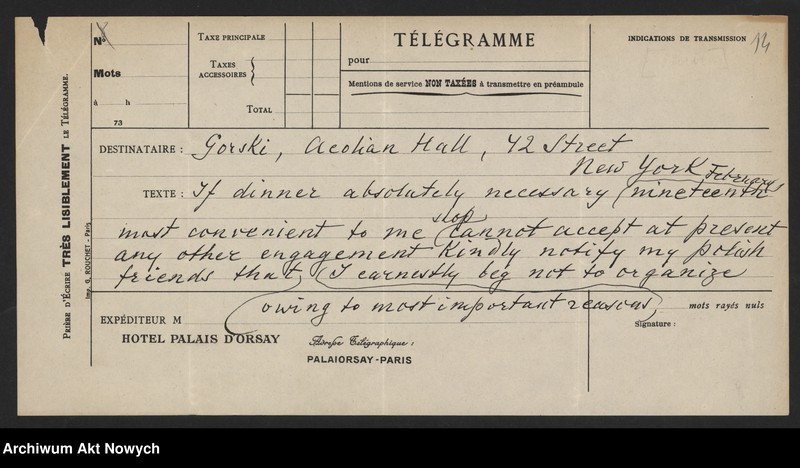 14
TÉLÉGRAMME
INDICATIONS DE TRANSMISSION
No
Mots
à h
73
TAXE PRINCIPALE
TAXES ACCESSOIRES
TOTAL
pour
Mentions de service NON TAXÉES à transmettre en préambule
PRIÈRE D'ÉCRIRE TRÈS LISIBLEMENT LE TÉLÉGRAMME.
Imp. G. ROUCHET - Paris
DESTINATAIRE : Gorski, Aeolian Hall, 42 Street
New York
TEXTE : If dinner absolutely necessary (nineteenth February
most convenient to me stop (cannot accept at present
any other engagement Kindly notify my polish
friends that, (I earnestly beg not to organize
(owing to most important reasons)
mots rayés nuls
EXPÉDITEUR M
Signature :
HOTEL PALAIS D'ORSAY
Adresse Télégraphique :
PALAIORSAY-PARIS
Archiwum Akt Nowych